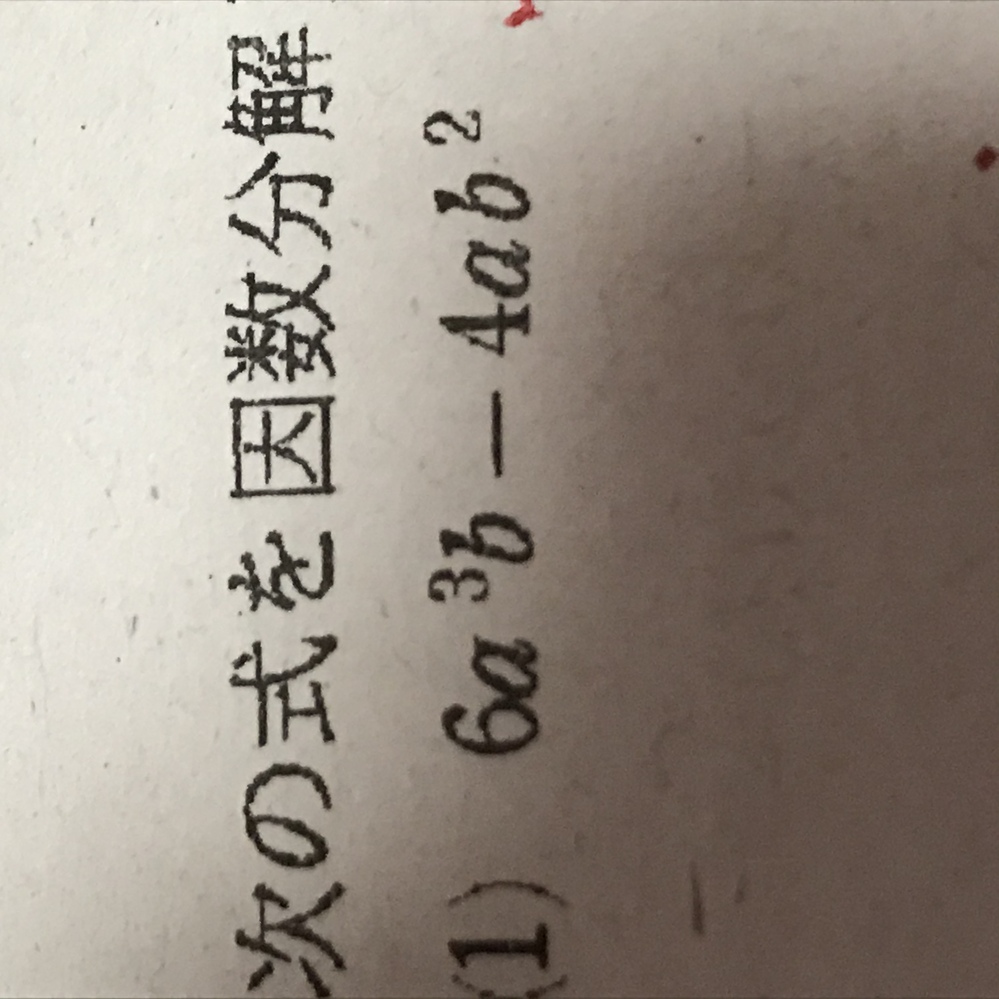 次の式を因数分解
(1) 6a³b − 4ab²